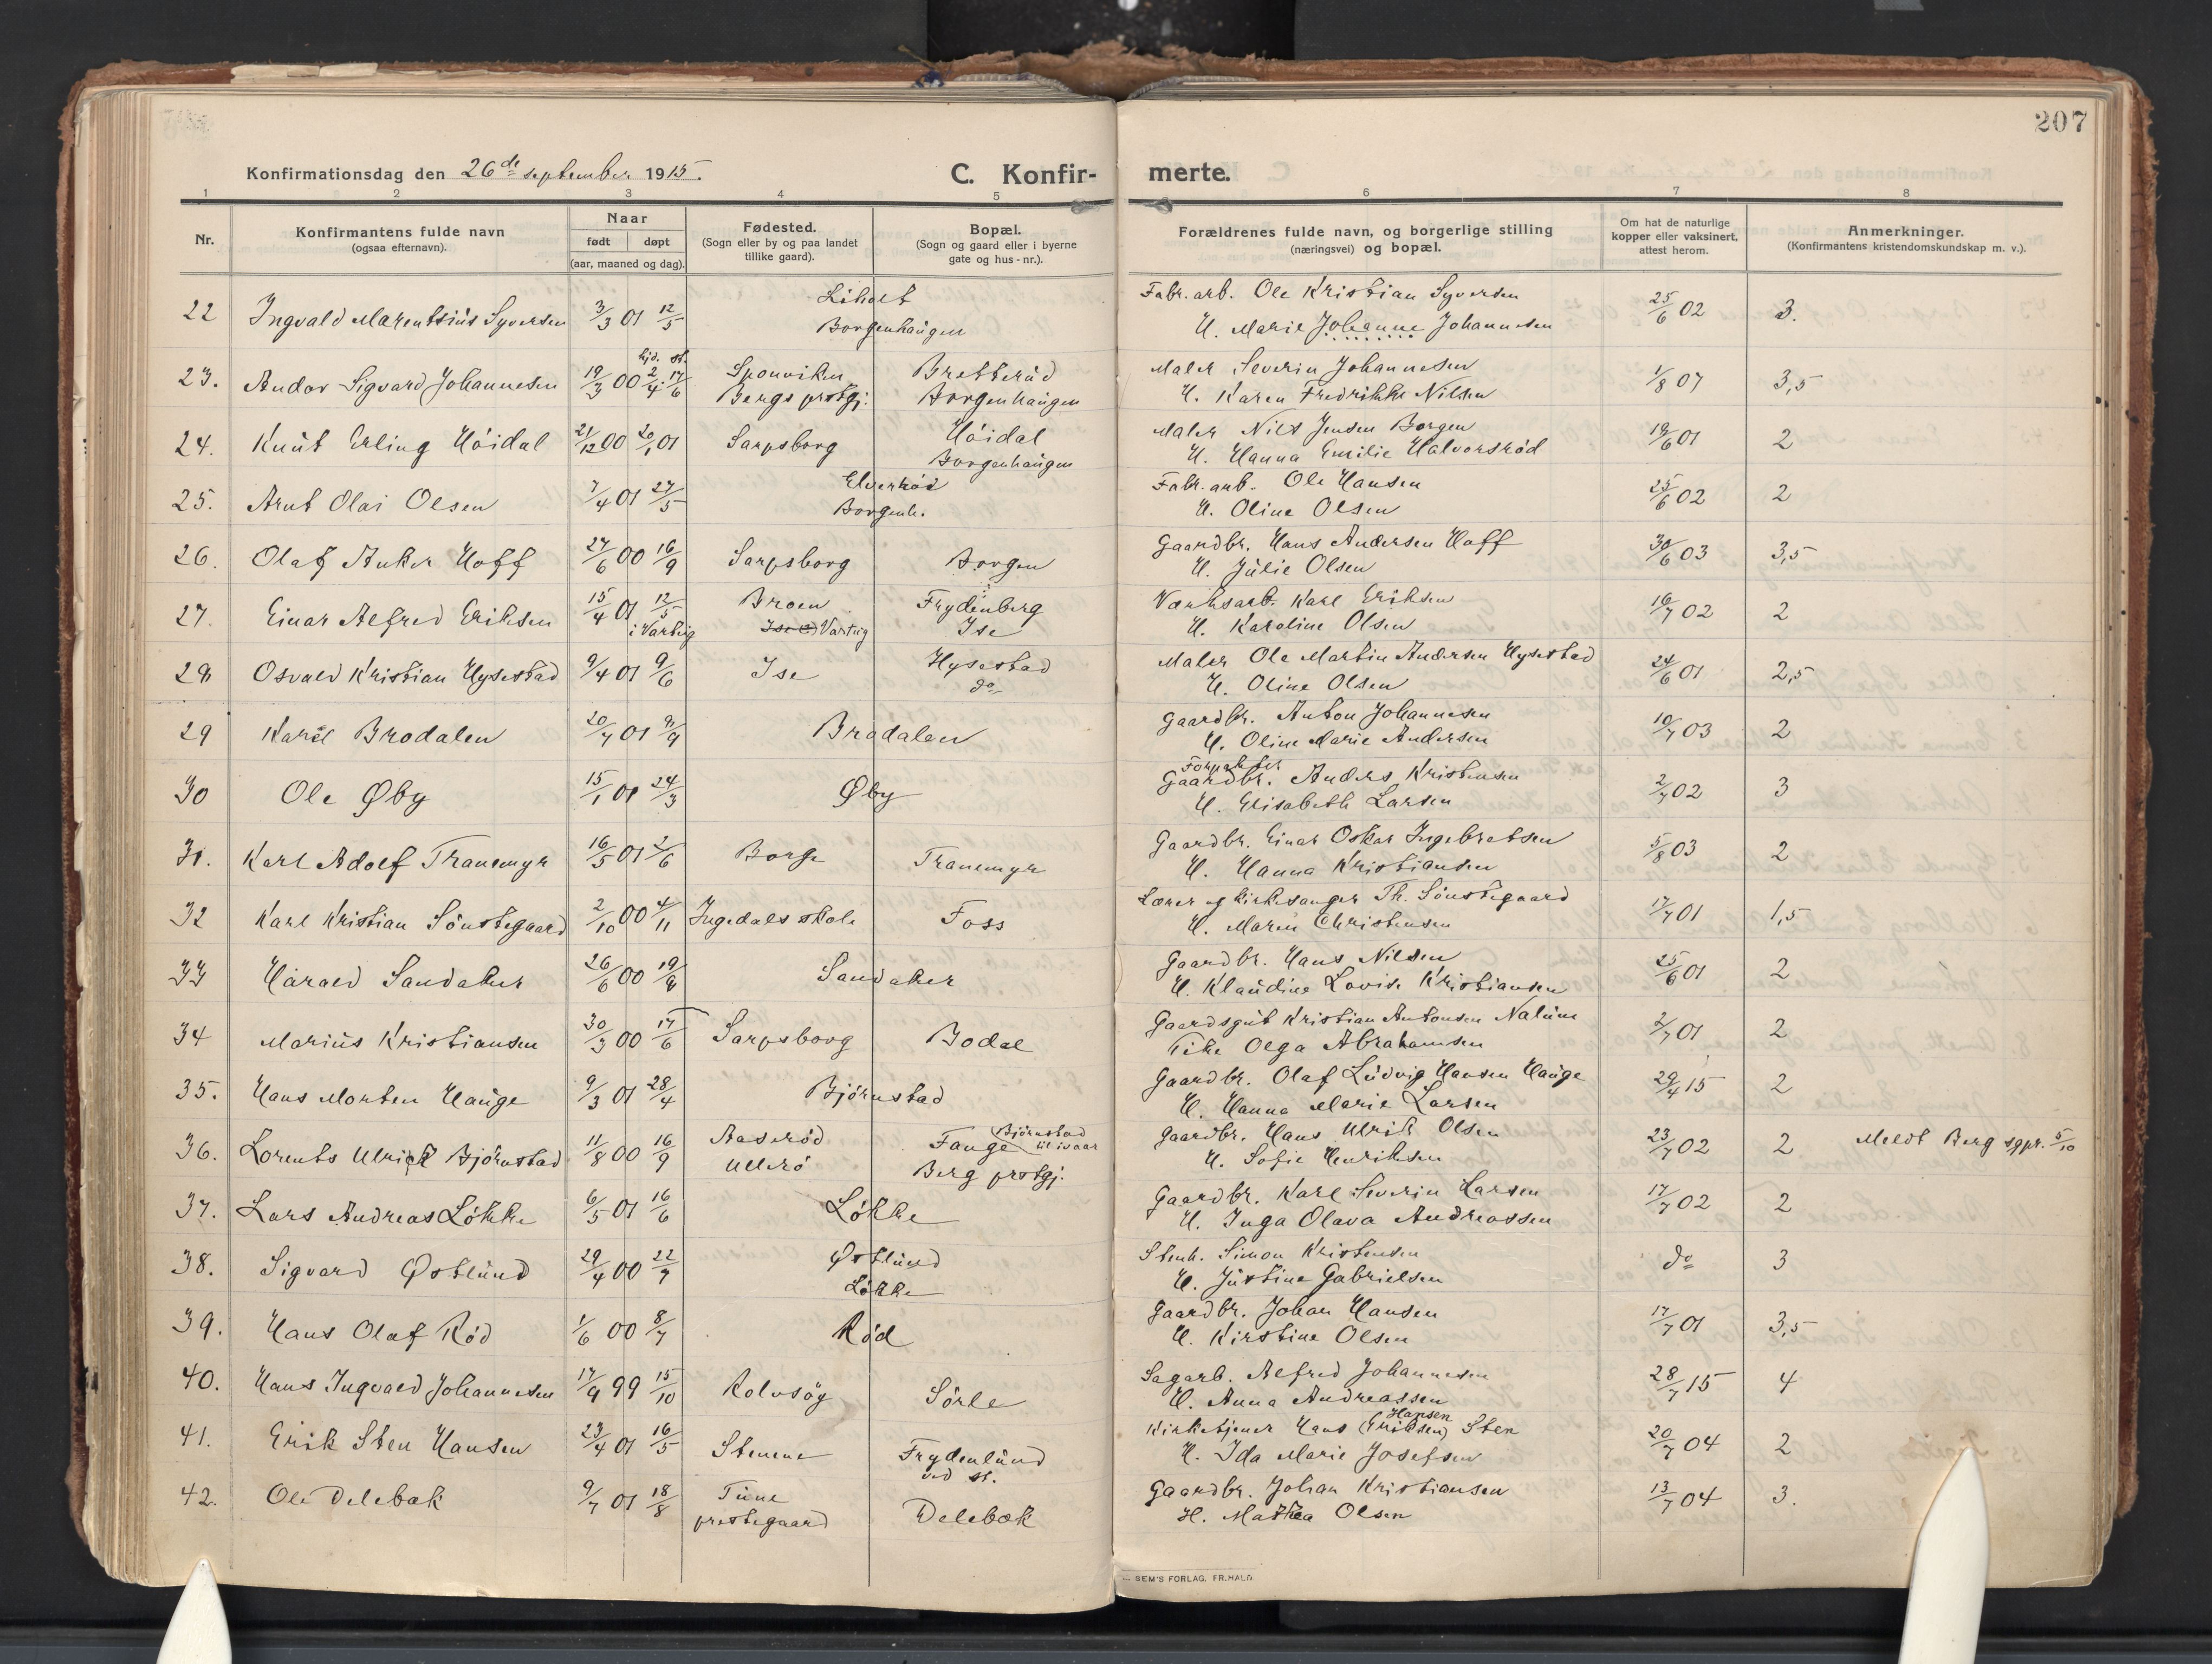 207
Konfirmationsdag den 26de september 1915.
C. Konfir-
merte.
1 2 3 4 5 6 7 8
Nr.
Konfirmantens fulde navn
(ogsaa efternavn).
Naar
født døpt
(aar, maaned og dag).
Fødested.
(Sogn eller by og paa landet
tillike gaard).
Bopæl.
(Sogn og gaard eller i byerne
gate og hus-nr.).
Forældrenes fulde navn, og borgerlige stilling
(næringsvei) og bopæl.
Om hat de naturlige
kopper eller vaksinert,
attest herom.
Anmerkninger.
(Konfirmantens kristendomskundskap m. v.).
22 Ingvald Marentsius Syversen 3/3 01 12/5 Liholt Fabr.arb. Ole Kristian Syversen 25/6 02 3.
Borgenhaugen H. Marie Johanne Johannesen
23. Andor Sigvard Johannesen 19/3 00 hjd. 2/4 st. 17/6 Sponviken Bretterud Maler Severin Johannesen 1/8 07 3,5
Bergs prstgj. Borgenhaugen H. Karen Fredrikke Nilsen
24. Knut Erling Høidal 21/12 00 20/1 01 Sarpsborg Høidal Maler Nils Jensen Borgen 19/6 01 2
Borgenhaugen H. Hanna Emilie Halvorsrød
25. Arnt Olai Olsen 7/4 01 27/5 Elverhøi Fabr.arb. Ole Hansen 25/6 02 2
Borgenh. H. Oline Olsen
26. Olaf Anker Hoff 27/6 00 16/9 Sarpsborg Borgen Gaardbr. Hans Andersen Hoff 30/6 03 3,5
H. Julie Olsen
27. Einar Alfred Eriksen 15/4 01 12/5 Broen Frydenberg Værksarb. Karl Eriksen 16/7 02 2
i Varteig Ise Varteig Ise H. Karoline Olsen
28 Osvald Kristian Hysestad 9/4 01 9/6 Ise Hysestad Maler Ole Martin Andersen Hysestad 24/6 01 2,5
do H. Oline Olsen
29 Karl Brodalen 20/7 01 9/9 Brodalen Gaardbr. Anton Johannesen 10/7 03 2
H. Oline Marie Andersen
Forpakter
30 Ole Øby 15/1 01 24/3 Øby Gaardbr. Anders Kristensen 2/7 02 3
H. Elisabeth Larsen
31. Karl Adolf Tranemyr 16/5 01 2/6 Borge Tranemyr Gaardbr. Einar Oskar Ingebretsen 5/8 03 2
H. Hanna Kristiansen
32 Karl Kristian Sønstegaard 2/10 00 4/11 Ingedals skole Foss Lærer og kirkesanger Th. Sønstegaard 17/7 01 1,5
H. Maren Christensen
33 Harald Sandaker 26/6 00 19/8 Sandaker Gaardbr. Hans Nilsen 25/6 01 2
H. Klaudine Lovise Kristiansen
34 Marius Kristiansen 30/3 00 17/6 Sarpsborg Bodal Gaardsgut Kristian Antonsen Nalum 2/7 01 2
Pike Olga Abrahamsen
35. Hans Morten Hauge 9/3 01 28/4 Bjørnstad Gaardbr. Olaf Ludvig Hansen Hauge 29/4 15 2
H. Hanna Marie Larsen
36. Lorents Ulrick Bjørnstad 11/8 00 16/9 Aaserød Fange Bjørnstad til ivaar Gaardbr. Hans Ulrik Olsen 23/7 02 2 Meldt Berg sgpr. 5/10
Ullerø Berg prstgj. H. Sofie Henriksen
37. Lars Andreas Løkke 6/5 01 16/6 Løkke Gaardbr. Karl Severin Larsen 17/7 02 2
H. Inga Olava Andreassen
38. Sigvard Østlund 29/4 00 22/7 Østlund Stenh. Simon Kristensen do 3
Løkke H. Justine Gabrielsen
39. Hans Olaf Rød 1/6 00 8/7 Rød Gaardbr. Johan Hansen 17/7 01 3,5
H. Kirstine Olsen
40. Hans Ingvald Johannesen 17/9 99 15/10 Rolvsøy Sørle Sagarb. Alfred Johannesen 28/7 15 4
H. Anna Andreassen
41. Erik Sten Hansen 23/4 01 16/5 Stenene Frydenlund Kirketjener Hans (Eriksen) Hansen Sten 20/7 04 2
ved st. H. Ida Marie Josefsen
42. Ole Delebak 9/7 01 18/8 Tune Delebæk Gaardbr. Johan Kristiansen 13/7 04 3.
prestegaard H. Mathea Olsen
SEM'S FORLAG. FR.HALD.